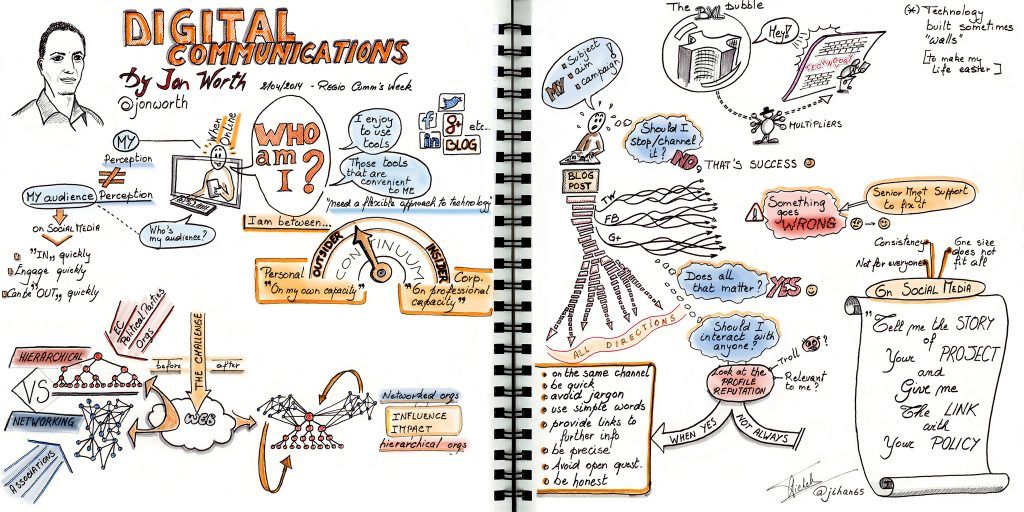 DIGITAL
COMMUNICATIONS
by Jon Worth
@jonworth
2/04/2014 - Regio Comm's Week
MY
Perception
≠
MY audience Perception
When
Online
WHO
am
I?
I enjoy
to use
tools
Those tools
that are
convenient
to ME
f g+ etc...
in BLOG
"Need a flexible approach to technology"
ON SOCIAL MEDIA
"IN" quickly
Engage quickly
Can be "OUT" quickly
Who's
my audience?
I am between...
OUTSIDER
CONTINUUM
INSIDER
Personal
"On my own capacity"
Corp.
"On professional
capacity"
EC
Political Parties
Orgs
HIERARCHICAL
VS
NETWORKING
ASSOCIATIONS
before
THE CHALLENGE
after
WEB
Networked orgs
INFLUENCE
IMPACT
hierarchical orgs
The BXL bubble
Hey!
TECHNOLOGY
(*) Technology
built sometimes
"walls"
[to make my
life easier]
MULTIPLIERS
MY
Subject
aim
campaign!
Should I
stop/channel
it?
NO, THAT'S SUCCESS
BLOG
POST
TW
FB
G+
ALL DIRECTIONS
Something
goes
WRONG
Senior Mngt Support
to fix it
Does all
that matter?
YES
Should I
interact with
anyone?
Troll ?
Relevant
to me?
Look at the
PROFILE
REPUTATION
WHEN YES
NOT ALWAYS
on the same channel
be quick
avoid jargon
use simple words
provide links to
further info
be precise
Avoid open quest.
be honest
Consistency
Not for everyone
One size
does not
fit all
On SOCIAL MEDIA
"Tell me the STORY
of
Your PROJECT
and
Give me
the LINK
with
Your POLICY
@jihan65